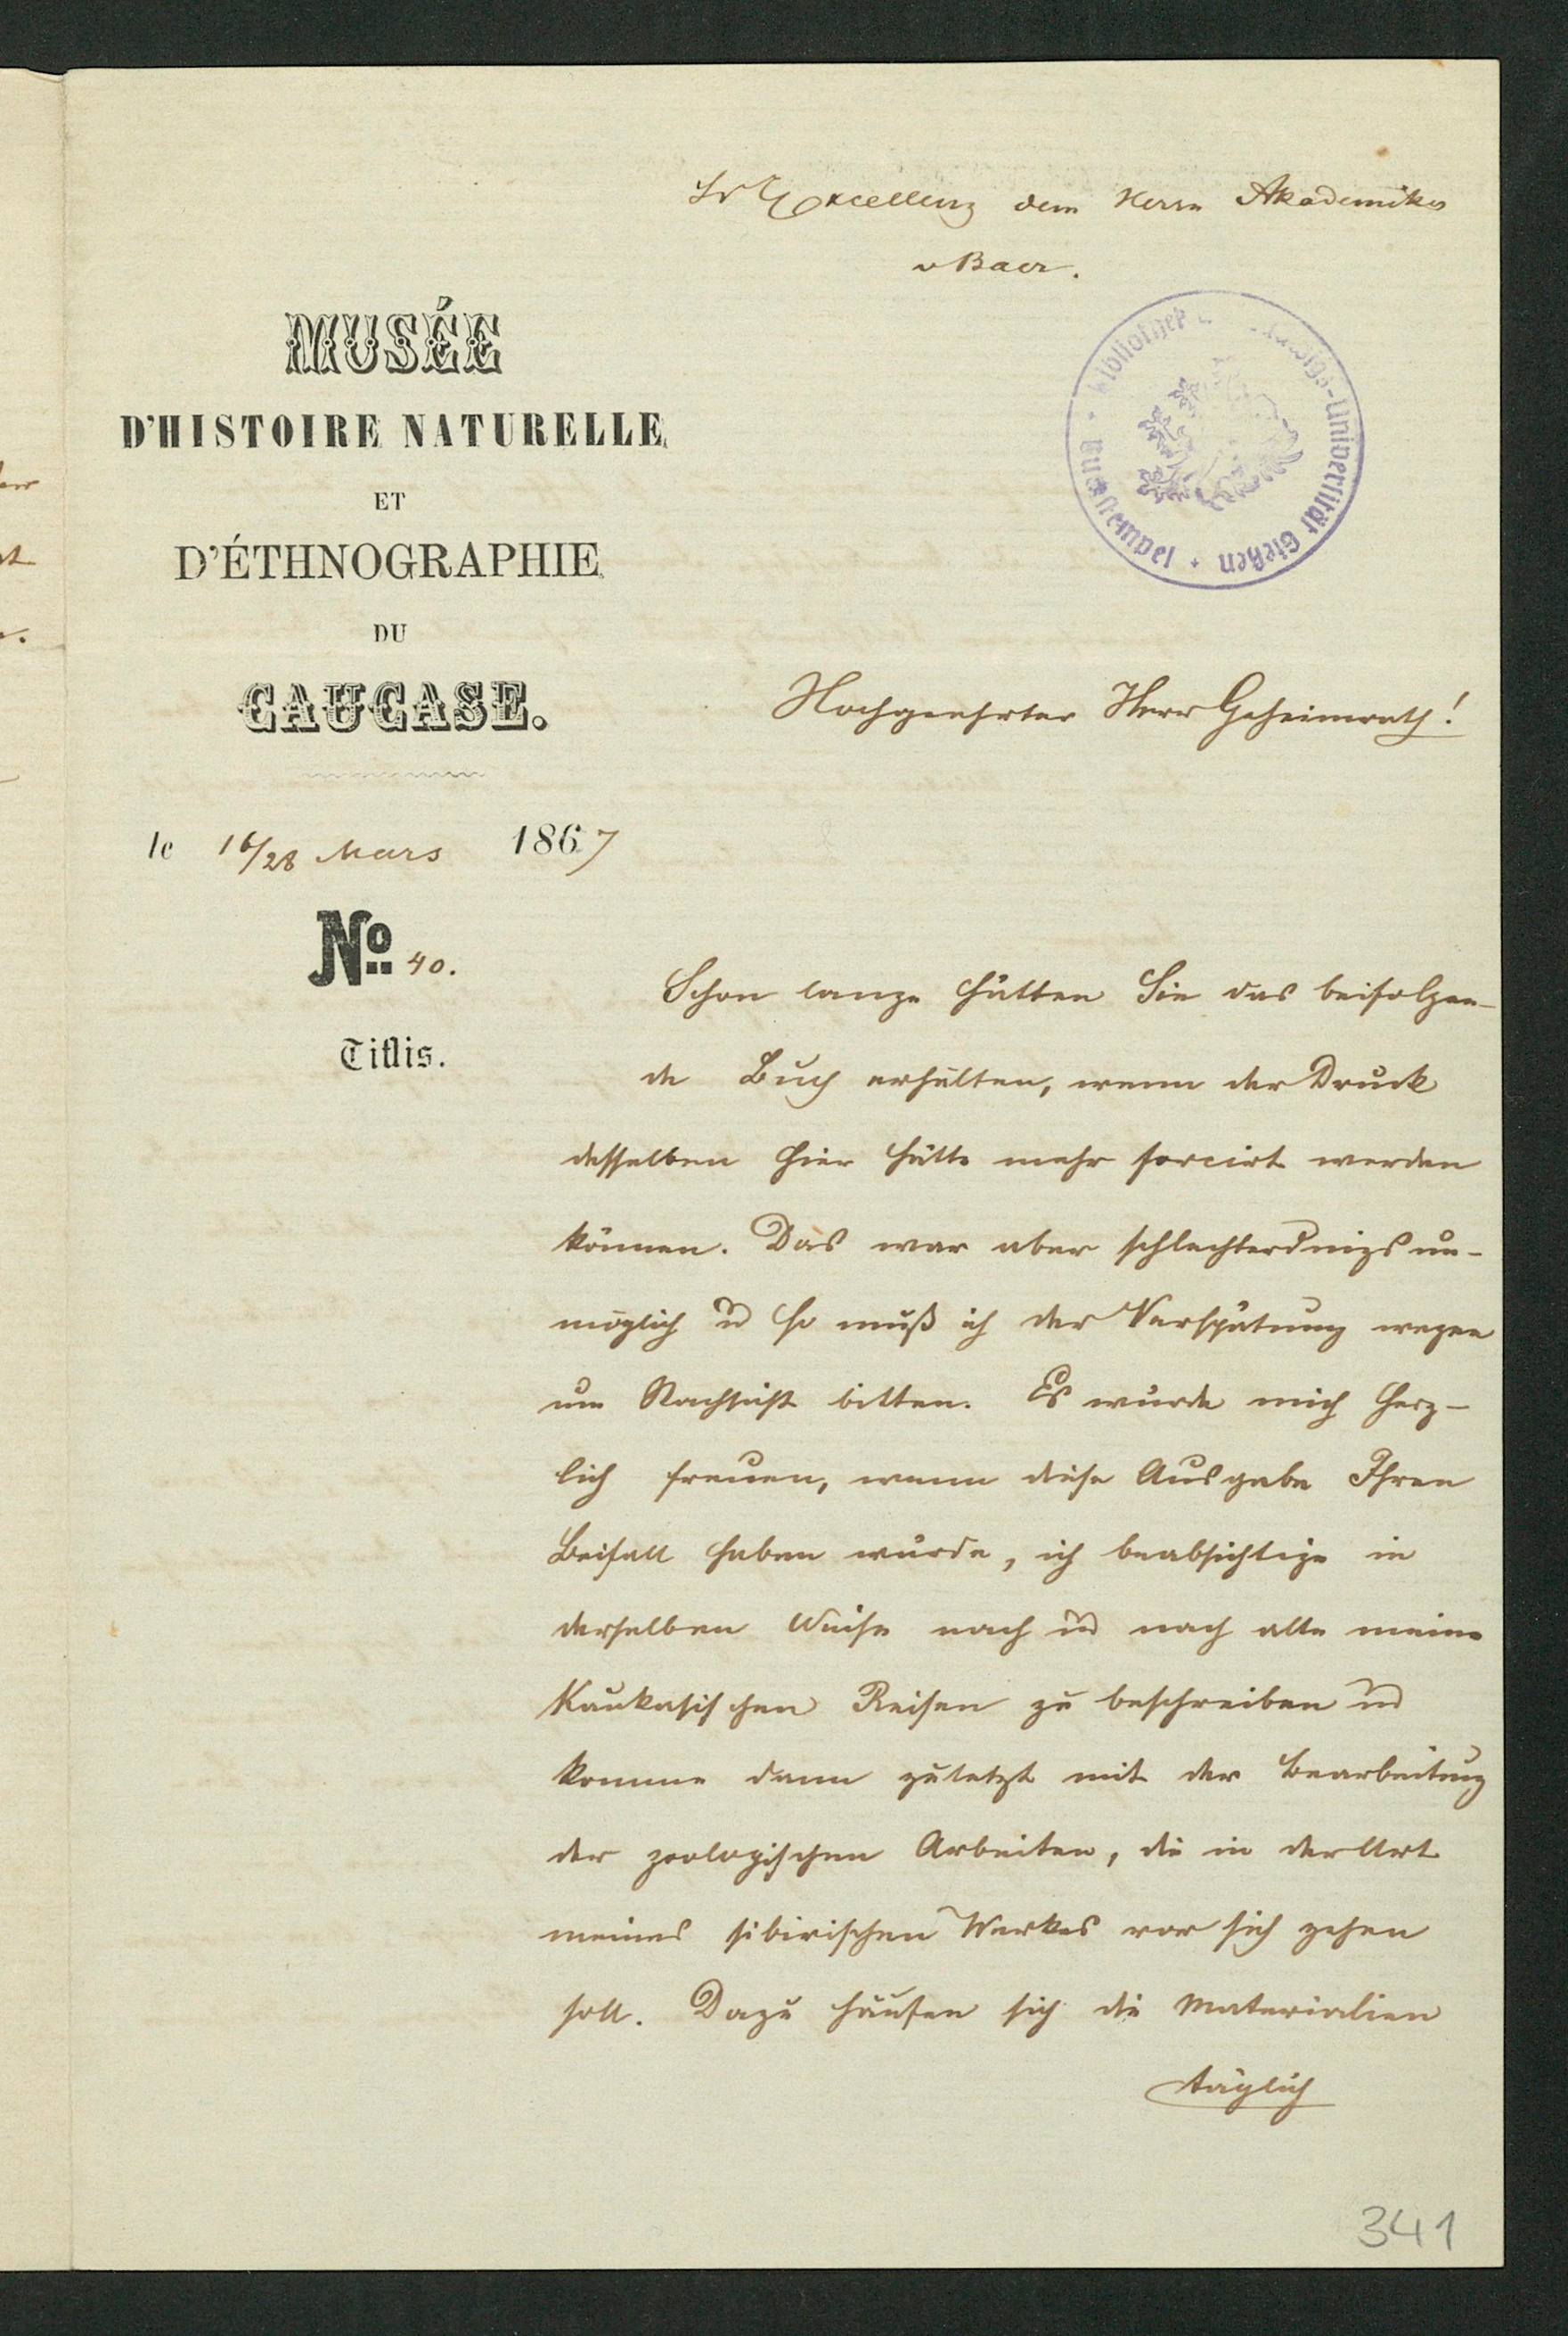 Sr Excellenz dem Herrn Akademiker
v Baer.
MUSÉE
D'HISTOIRE NATURELLE
ET
D'ÉTHNOGRAPHIE
DU
CAUCASE.
Bibliothek Ludwigs-Universität Gießen
Tauschstempel
Hochgeehrter Herr Geheimrath!
le 16/28 Mars 1867
No 40.
Tiflis.
Schon lange hätten Sie das beifolgen-
de Buch erhalten, wenn der Druck
desselben hier hätte mehr forcirt werden
können. Das war aber schlechterdings un-
möglich u so muß ich der Verspätung wegen
um Nachsicht bitten. Es würde mich herz-
lich freuen, wenn diese Ausgabe Ihren
Beifall haben würde, ich beabsichtige in
derselben Weise nach u nach alle meine
Kaukasischen Reisen zu beschreiben u
komme dann zuletzt mit der Bearbeitung
der zoologischen Arbeiten, die in der Art
meines sibirischen Werkes vor sich gehen
soll. Dazu häufen sich die Materialien
täglich
341